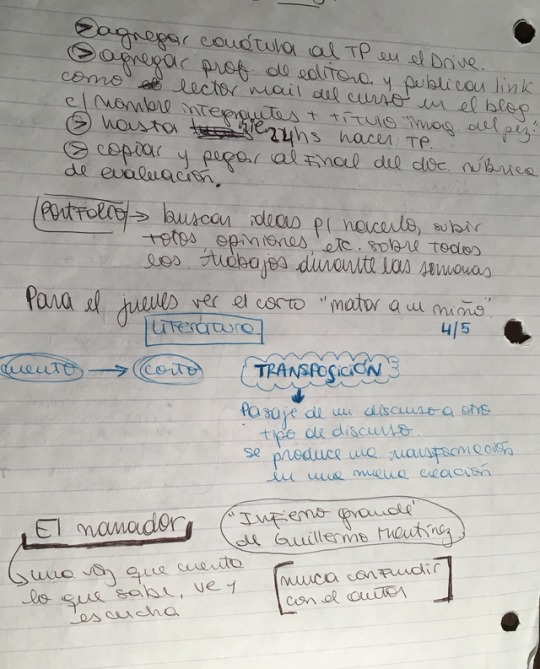 agregar carátula al TP en el Drive.
agregar prof. de editora y publicar link
como lector mail del curso en el blog
c/ nombre integrantes + título "imag del pez"
hasta 24hs hacer TP.
copiar y pegar al final del doc. rúbrica
de evaluación.
Portfolio → buscar ideas p/ hacerlo, subir
fotos, opiniones, etc. sobre todos
los trabajos durante las semanas
Para el jueves ver el corto "matar a un niño".
Literatura 4/5
cuento → corto TRANSPOSICIÓN
Pasaje de un discurso a otro
tipo de discurso.
se produce una transformación
en una nueva creación
El narrador "Infierno grande"
de Guillermo Martínez
una voz que cuenta
lo que sabe, ve y
escucha
nunca confundir
con el autor